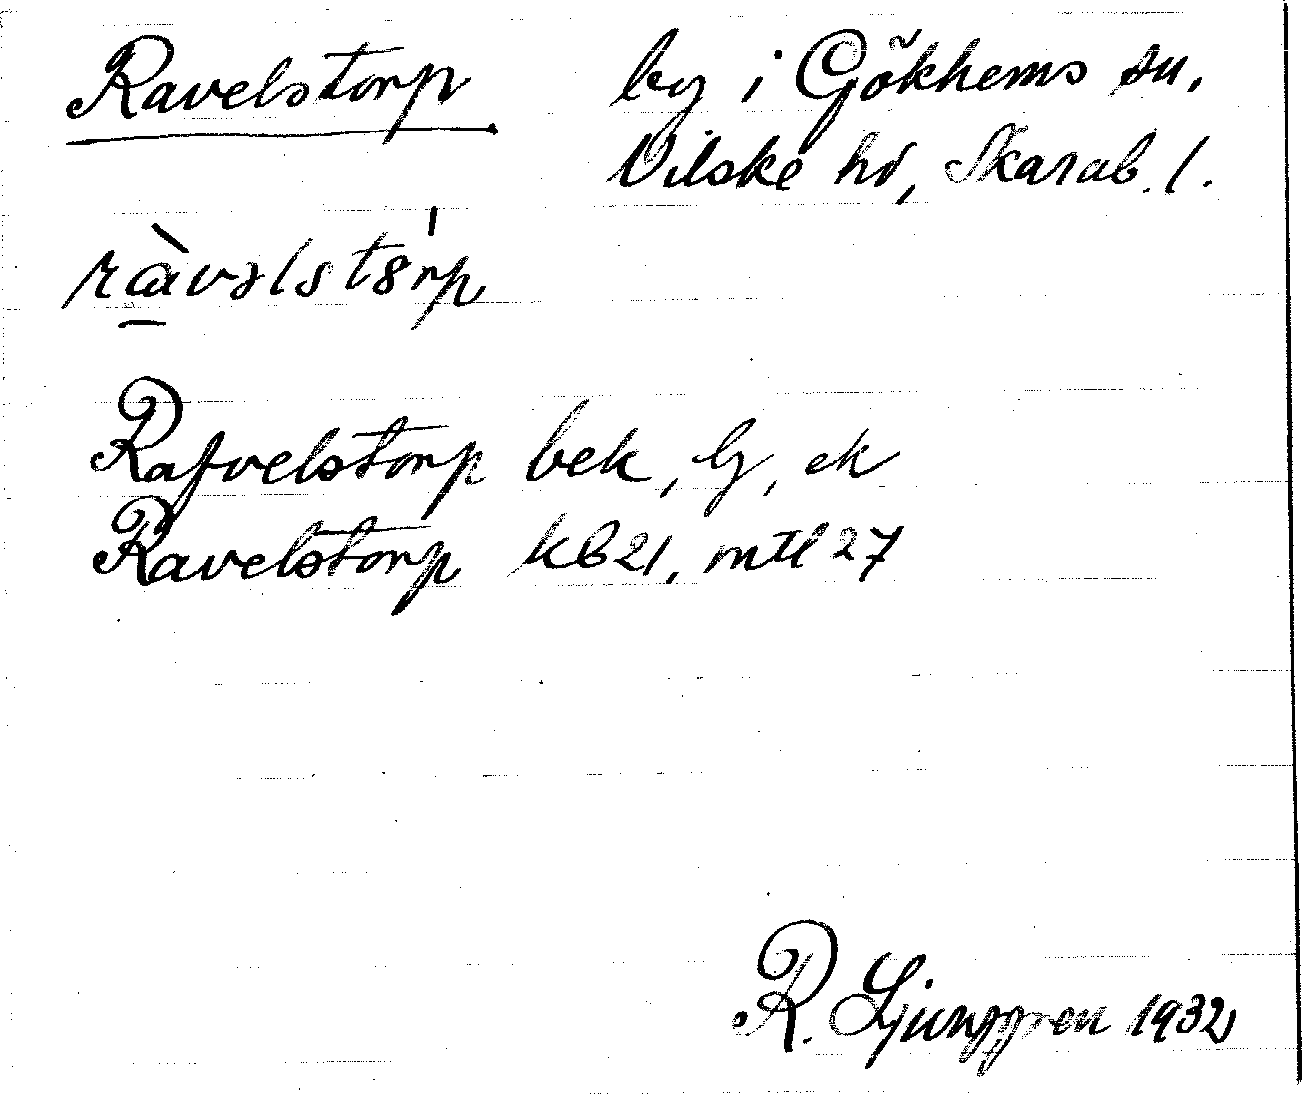 Ravelstorp by i Gökhems sn,
Vilske hd, Skarab. l.
ràvəlstörp
Rafvelstorp bek, ek
Ravelstorp kb 21, mtl 27
R. Ljunggren 1932